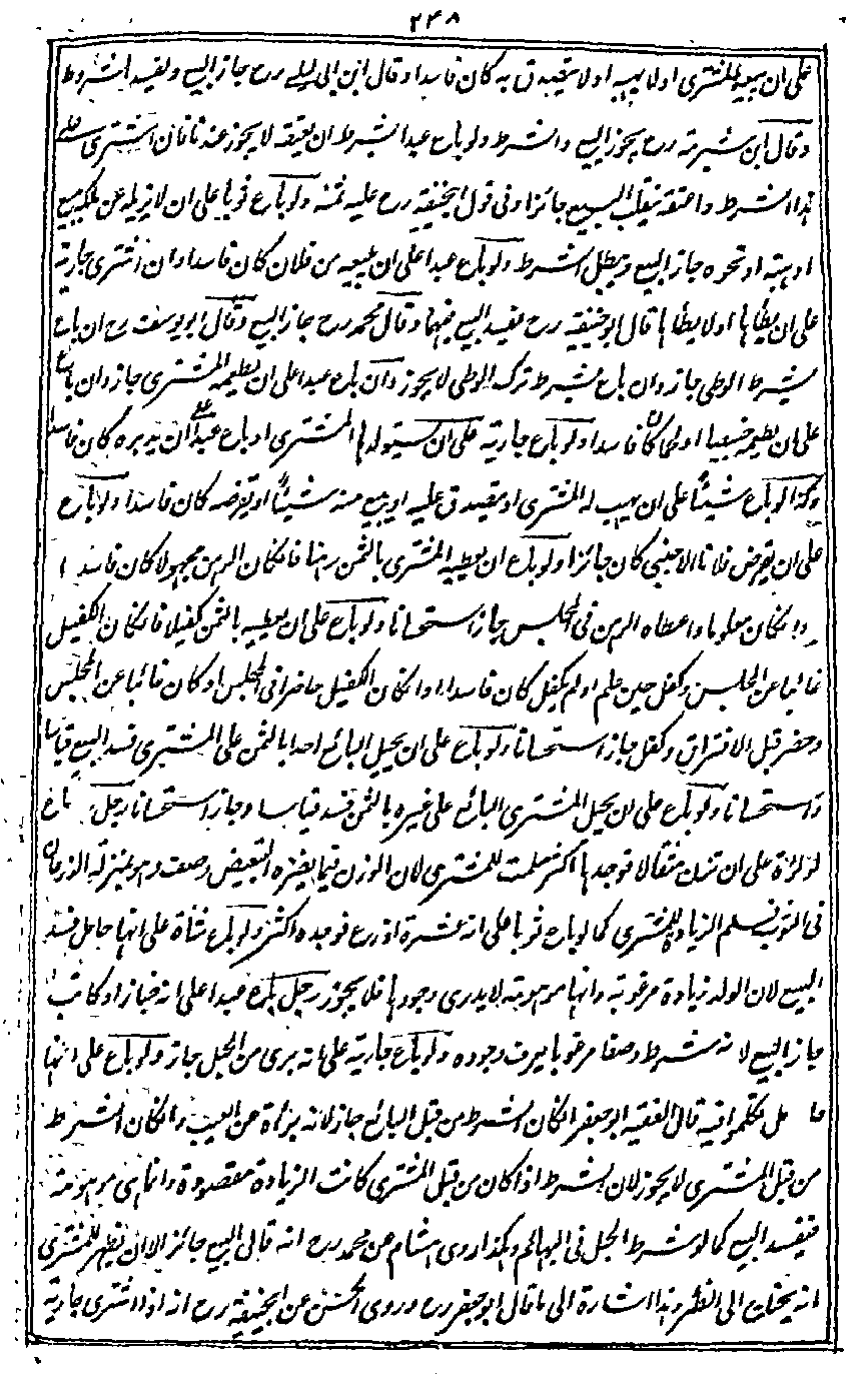 ۲۴۸
على ان يبيع المشترى اولا يهبه اولا يتصدق به كان فاسدا وقال ابن ابى ليلے رح جاز البيع ويفسد الشرط
وقال ابن شبرمة رح يجوز البيع والشرط ولو باع عبدا بشرط ان يعتقه لا يجوز عندنا فان اشترى على
هذا الشرط واعتقه ينقلب البيع جائزا وفى قول ابيحنيفة رح عليه ثمنه ولو باع ثوبا على ان لا يزيله عن ملكه ببيع
او هبة او نحوه جاز البيع ويبطل الشرط ولو باع عبدا على ان يبيعه من فلان كان فاسدا وان اشترى جارية
على ان يطأها اولا يطأها قال ابو حنيفة رح يفسد البيع فيهما وقال محمد رح جاز البيع وقال ابو يوسف رح ان باع
بشرط الوطى جاز وان باع بشرط ترك الوطى لا يجوز وان باع عبدا على ان يطعمه المشترى جاز وان باع
على ان يطعمه خبيصا او لحما كان فاسدا ولو باع جارية على ان يستولدها المشترى او باع عبدا على ان يدبره كان فاسدا
وكذا لو باع شيئا على ان يهب له المشترى او يتصدق عليه او يبيع منه شيئا او يقرضه كان فاسدا ولو باع
على ان يقرض فلانا الاجنبى كان جائزا ولو باع ان يعطيه المشترى بالثمن رهنا فان كان الرهن مجهولا كان فاسدا
وان كان معلوما واعطاه الرهن فى المجلس جاز استحسانا ولو باع على ان يعطيه بالثمن كفيلا فان كان الكفيل
غائبا عن المجلس وكفل حين علم او لم يكفل كان فاسدا وان كان الكفيل حاضرا فى المجلس او كان غائبا عن المجلس
وحضر قبل الافتراق وكفل جاز استحسانا ولو باع على ان يحيل البائع احدا بالثمن على المشترى فسد البيع قياسا
واستحسانا ولو باع على ان يحيل المشترى البائع على غيره بالثمن فسد قياسا وجاز استحسانا رجل باع
لؤلؤة على ان تزن مثقالا فوجدها اكثر سلمت للمشترى لان الوزن فيما يضره التبعيض وصف وهو بمنزلة الذرعان
فى الثوب فيسلم الزيادة للمشترى كما لو باع ثوبا على انه عشرة اذرع فوجده اكثر ولو باع شاة على انها حامل فسد
البيع لان الولد زيادة مرغوبة وانها موهومة لا يدرى وجودها فلا يجوز رجل باع عبدا على انه خباز او كاتب
جاز البيع لانه شرط وصفا مرغوبا يعرف وجوده ولو باع جارية على انه برى من الحبل جاز ولو باع على انها
حامل تكلموا فيه قال الفقيه ابو جعفر ان كان الشرط من قبل البائع جاز لانه براءة عن العيب وان كان الشرط
من قبل المشترى لا يجوز لان الشرط اذا كان من قبل المشترى كانت الزيادة مقصودة وانها هى موهومة
فيفسد البيع كما لو شرط الحبل فى البهائم وهكذا روى هشام عن محمد رح انه قال البيع جائز الا ان يظهر للمشترى
انه يحتاج الى الظئر وهذا اشارة الى ما قال ابو جعفر رح وروى الحسن عن ابيحنيفة رح انه اذا اشترى جارية